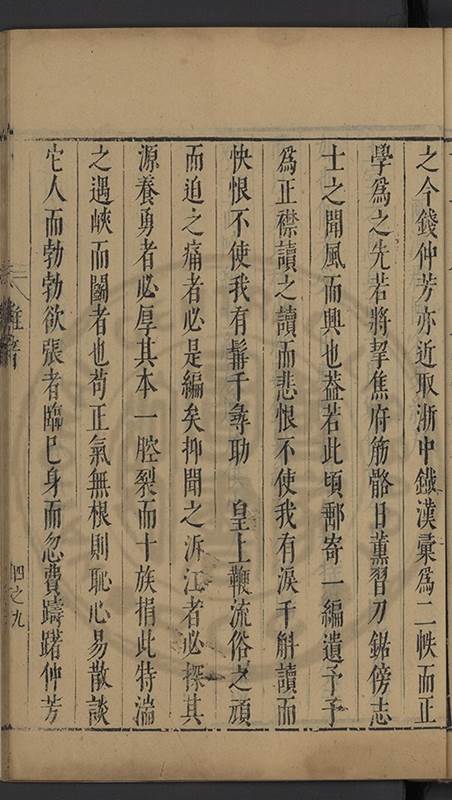 之今錢仲芳亦近取浙中鐵漢彙為二帙而正
學為之先若將挈焦府筋骼日薰習刀鋸傍志
士之聞風而興也葢若此頃鄅寄一編遺予予
為正襟讀之讀而悲恨不使我有淚千斛讀而
快恨不使我有髯千尋助 皇上鞭流俗之頑
而迫之痛者必是編矣抑聞之泝江者必探其
源養勇者必厚其本一腔裂而十族捐此特湍
之遇峽而鬭者也苟正氣無根則恥心易散談
它人而勃勃欲張者臨巳身而忽費躊躇仲芳
四之九